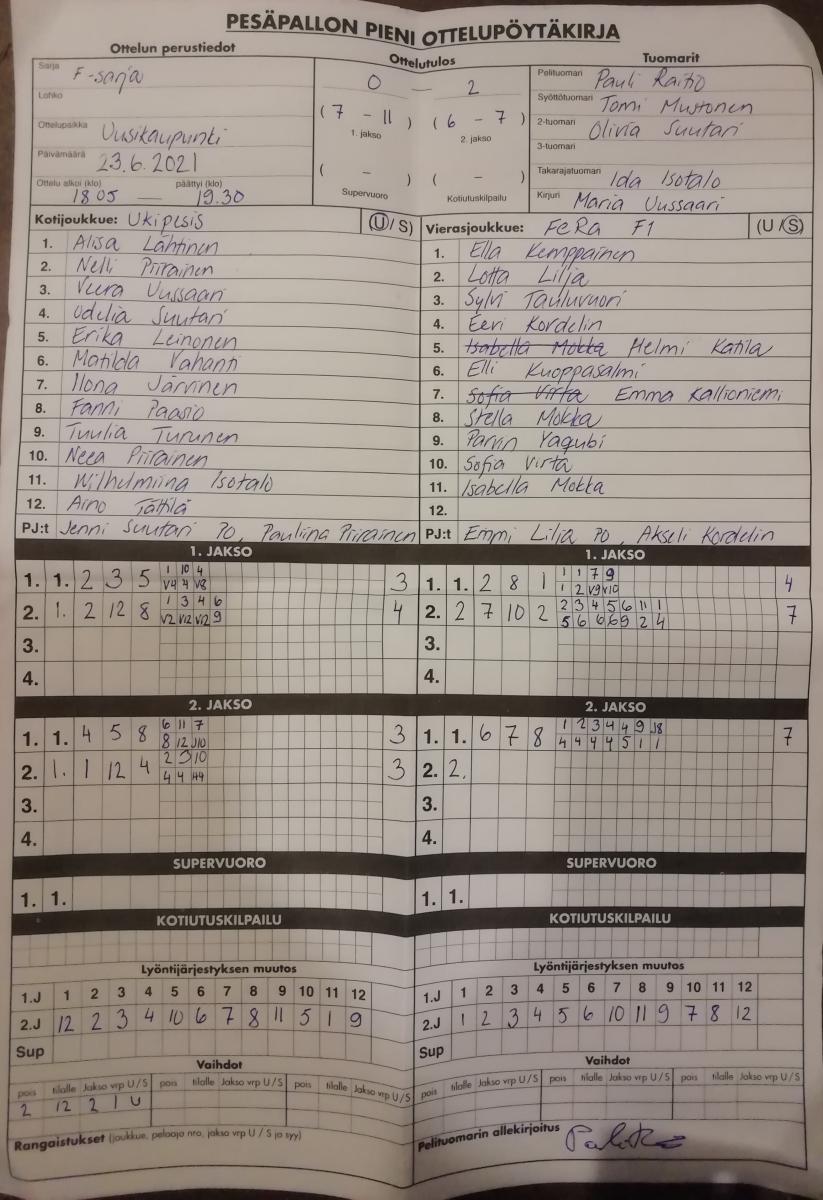 PESÄPALLON PIENI OTTELUPÖYTÄKIRJA
Ottelun perustiedot
Ottelutulos
Tuomarit
Sarja F-sarja
Lohko
Ottelupaikka Uusikaupunki
Päivämäärä 23.6.2021
Ottelu alkoi (klo) päättyi (klo)
18.05 — 19.30
0 — 2
( 7 - 11 ) ( 6 - 7 )
1. jakso 2. jakso
( - ) ( - )
Supervuoro Kotiutuskilpailu
Pelituomari Pauli Raitio
Syöttötuomari Tomi Mustonen
2-tuomari Olivia Suutari
3-tuomari
Takarajatuomari Ida Isotalo
Kirjuri Maria Uussaari
Kotijoukkue: Ukipesis (U / S)
1. Alisa Lähtinen
2. Nelli Piirainen
3. Veera Uussaari
4. Odelia Suutari
5. Erika Leinonen
6. Matilda Vahanti
7. Ilona Järvinen
8. Fanni Paasio
9. Tuulia Turunen
10. Neea Piirainen
11. Wilhelmiina Isotalo
12. Aino Tättilä
PJ:t Jenni Suutari PO, Pauliina Piirainen
Vierasjoukkue: FeRa F1 (U / S)
1. Ella Kemppainen
2. Lotta Lilja
3. Sylvi Tauluvuori
4. Eevi Kordelin
5. Isabella Mokka Helmi Katila
6. Elli Kuoppasalmi
7. Sofia Virta Emma Kallioniemi
8. Stella Mokka
9. Parvin Yaqubi
10. Sofia Virta
11. Isabella Mokka
12.
PJ:t Emmi Lilja PO, Akseli Kordelin
1. JAKSO
1. 1. 2 3 5 1 10 4 3
V4 4 V8
2. 1. 2 12 8 1 3 4 6 4
V2 V12 V12 9
3.
4.
1. JAKSO
1. 1. 2 8 1 1 1 7 9 4
1 2 V9 V10
2. 2 7 10 2 2 3 4 5 6 11 1 7
5 6 6 6 9 2 4
3.
4.
2. JAKSO
1. 1. 4 5 8 6 11 7 3
8 12 J10
2. 1. 1 12 4 2 3 10 3
4 4
3.
4.
2. JAKSO
1. 1. 6 7 8 1 2 3 4 4 9 J8 7
4 4 4 4 5 1 1
2. 2.
3.
4.
SUPERVUORO
1. 1.
SUPERVUORO
1. 1.
KOTIUTUSKILPAILU
KOTIUTUSKILPAILU
Lyöntijärjestyksen muutos
1.J 1 2 3 4 5 6 7 8 9 10 11 12
2.J 12 2 3 4 10 6 7 8 11 5 1 9
Sup
Lyöntijärjestyksen muutos
1.J 1 2 3 4 5 6 7 8 9 10 11 12
2.J 1 2 3 4 5 6 10 11 9 7 8 12
Sup
Vaihdot
pois tilalle Jakso vrp U/S pois tilalle Jakso vrp U/S pois tilalle Jakso vrp U/S
2 12 2 1 U
Vaihdot
pois tilalle Jakso vrp U/S pois tilalle Jakso vrp U/S pois tilalle Jakso vrp U/S
Rangaistukset (joukkue, pelaaja nro, jakso vrp U / S ja syy)
Pelituomarin allekirjoitus